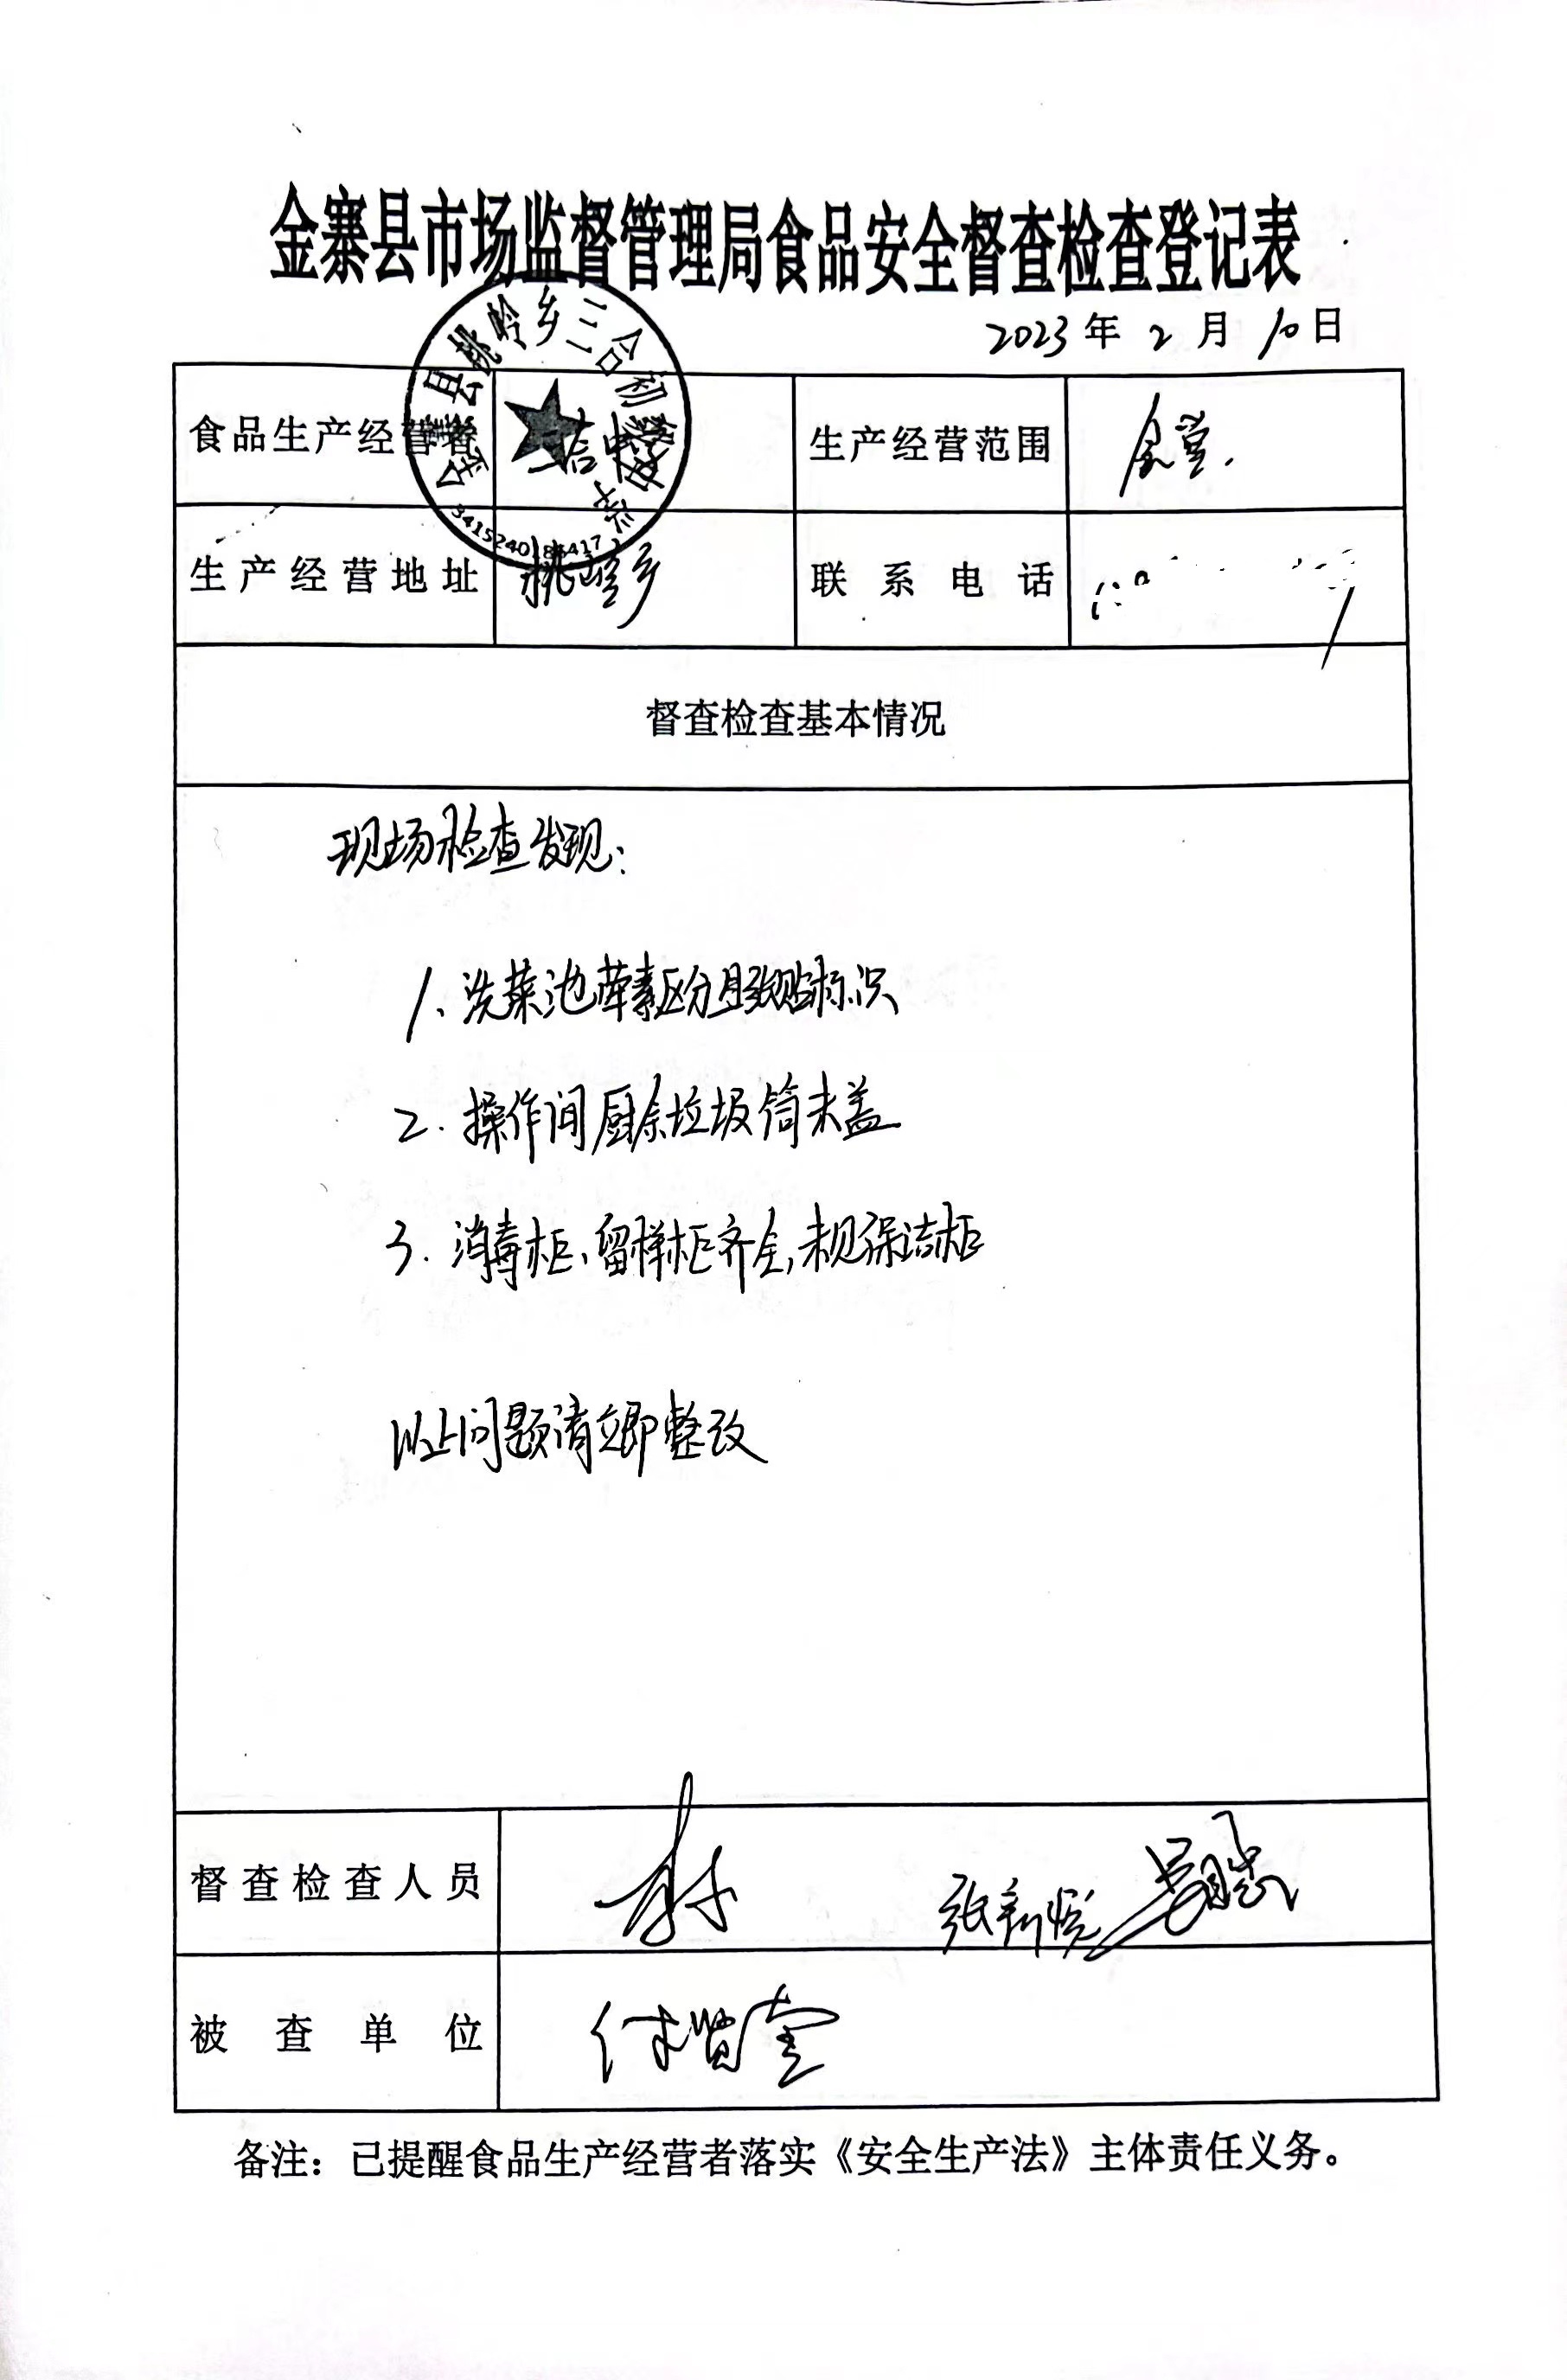 金寨县市场监督管理局食品安全督查检查登记表
2023年2月10日
金寨县桃岭乡三合初级中学
3415240186417
食品生产经营者 三合中学 生产经营范围 食堂.
生产经营地址 桃岭乡 联系电话
督查检查基本情况
现场检查发现:
1、洗菜池荤素区分且张贴标识
2. 操作间厨余垃圾筒未盖
3. 消毒柜、留样柜齐全,未见保洁柜
以上问题请立即整改
督查检查人员 张新悦
被查单位
备注：已提醒食品生产经营者落实《安全生产法》主体责任义务。